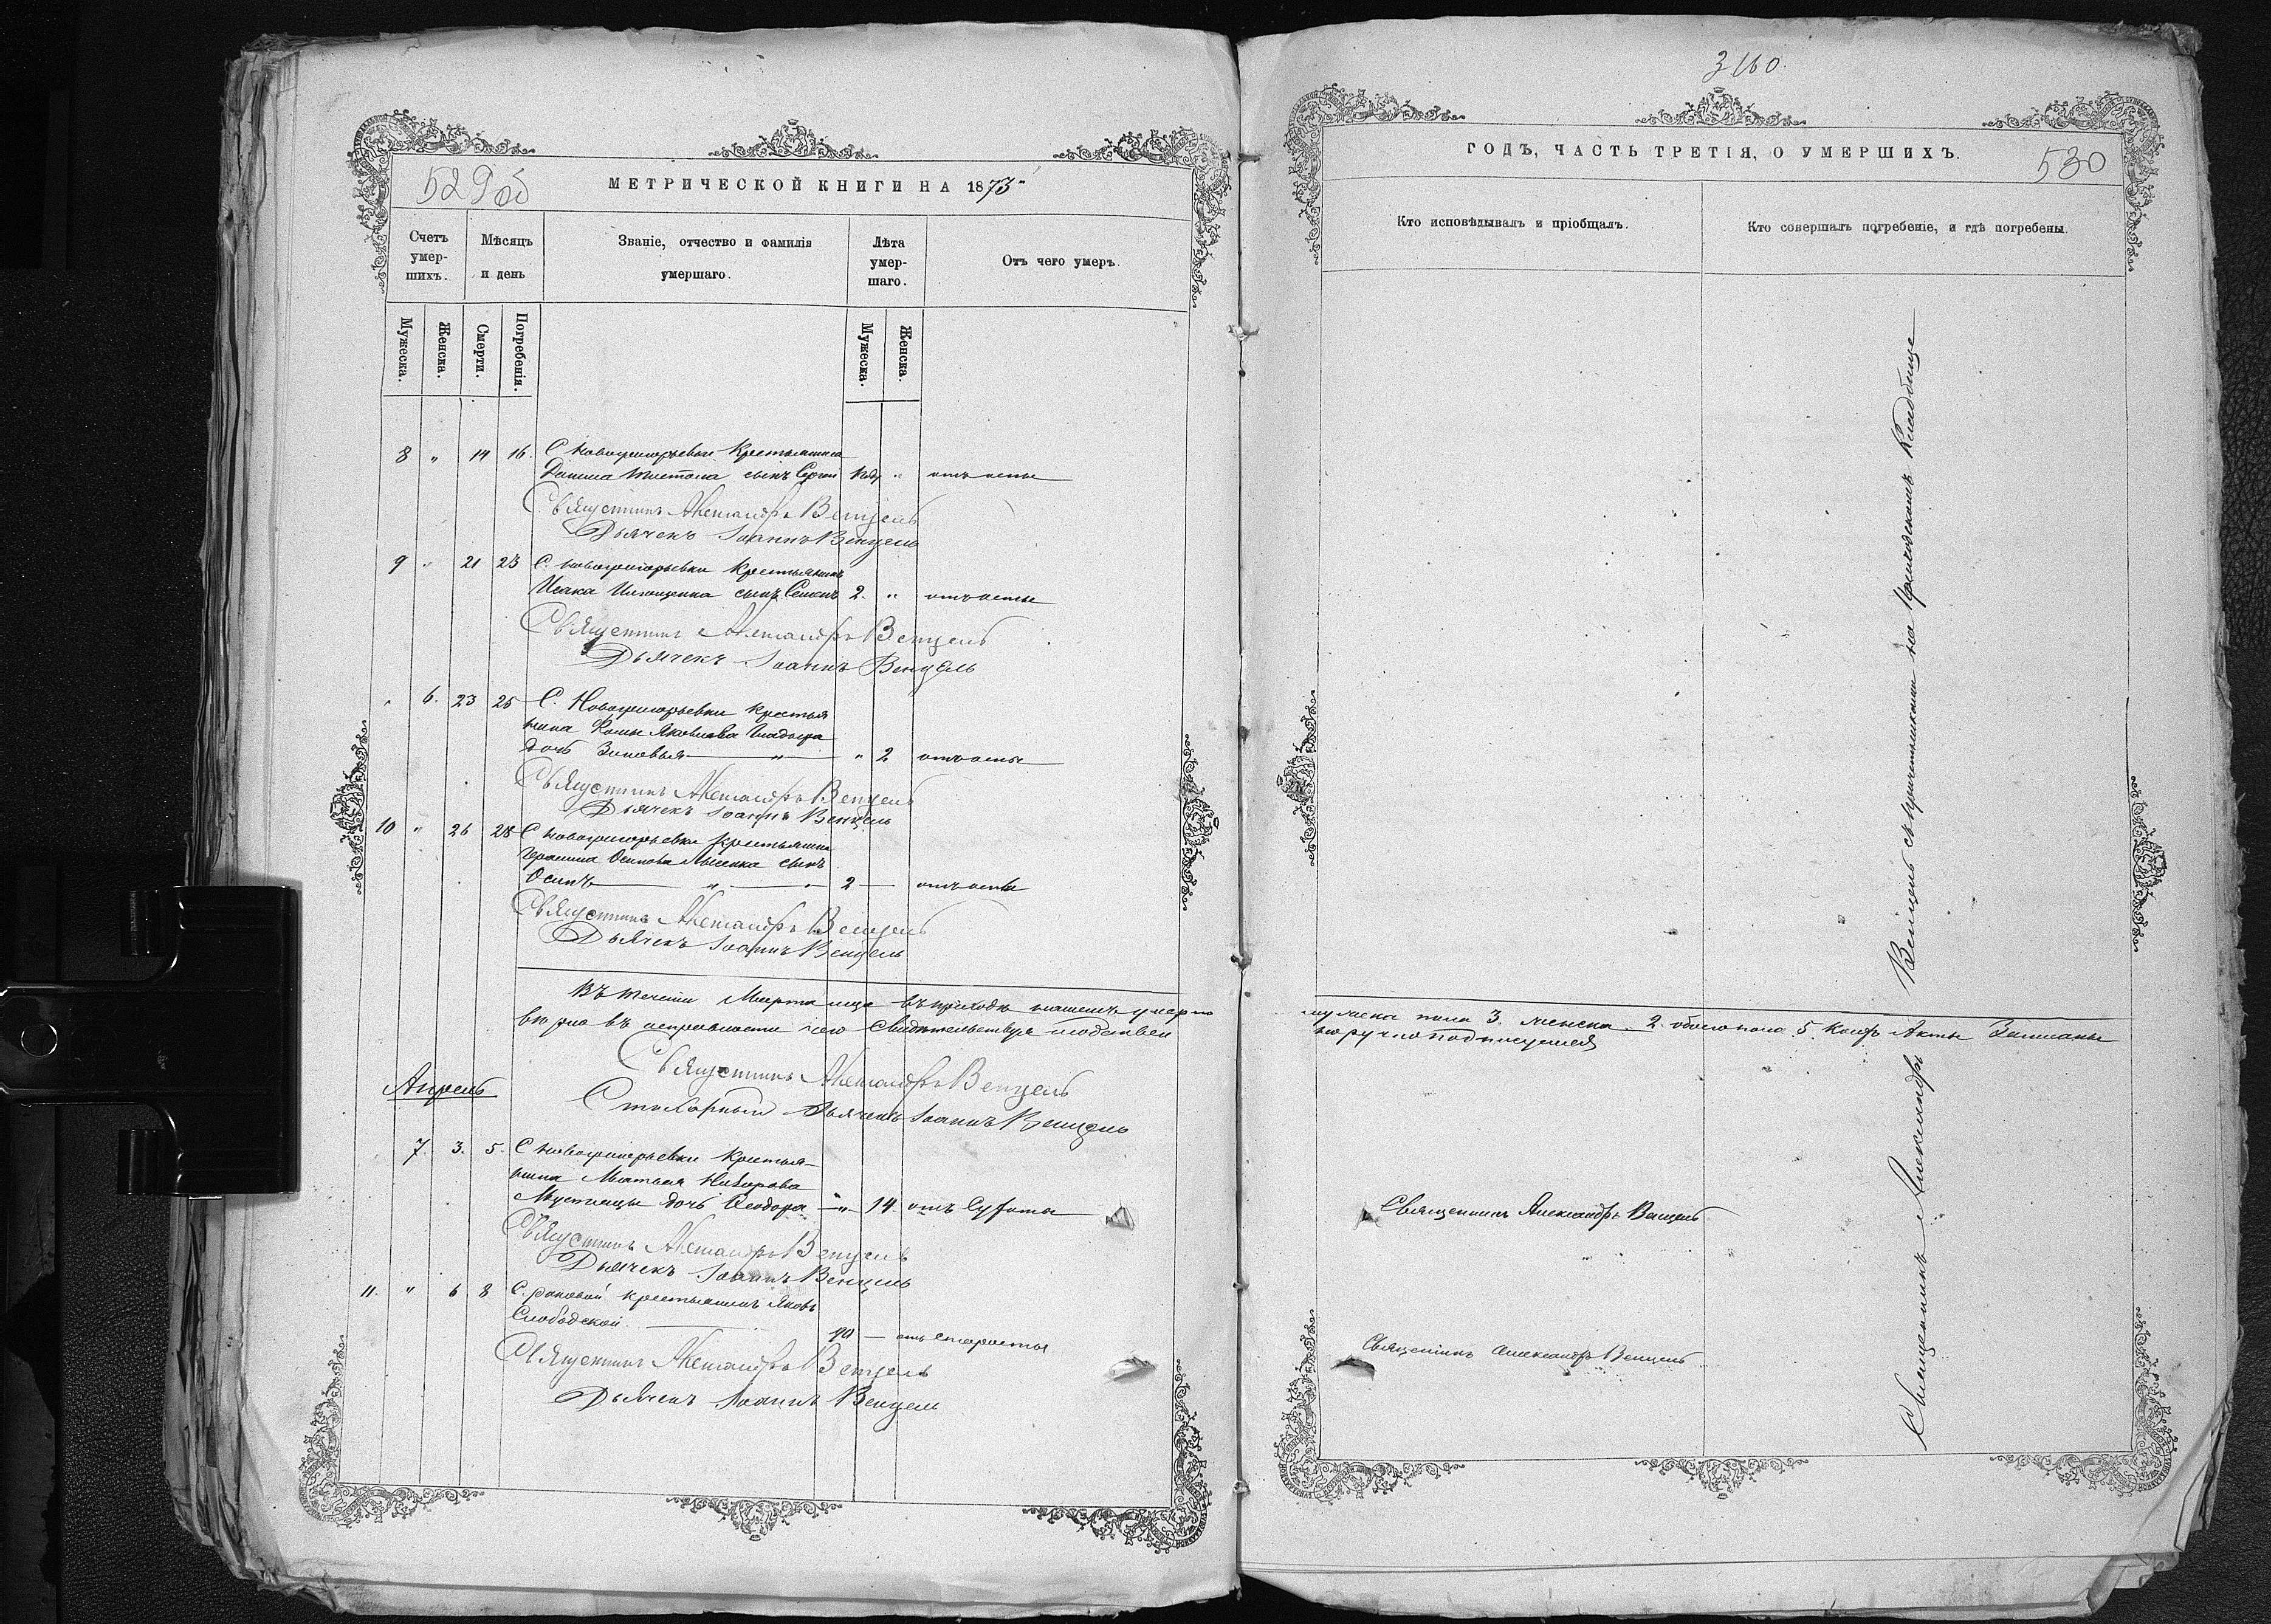 529об
МЕТРИЧЕСКОЙ КНИГИ НА 1873
Счетъ умер-шихъ.
Мѣсяцъ и день
Званіе, отчество и фамилія умершаго.
Лѣта умер-шаго.
Отъ чего умеръ.
Мужеска.
Женска.
Смерти.
Погребенія.
Мужеска.
Женска.
8 „ 14 16 С Новогригорьевки Крестьянина
сынъ Сергій „ отъ оспы
Священникъ Александръ Венцель
Дьячекъ Іоаннъ Венцель
9 „ 21 23 С. Новогригорьевки Крестьянина
Исака сынъ 2. „ отъ оспы
Священникъ Александръ Венцель
Дьячекъ Іоаннъ Венцель
„ 6. 23 25 С. Новогригорьевки Крестья
нина Фомы Яковлева
дочь Зиновья „ „ 2 отъ оспы
Священникъ Александръ Венцель
Дьячекъ Іоаннъ Венцель
10 „ 26 28 С Новогригорьевки крестьянина
Герасима Осипова сынъ
Осипъ „ „ 2 отъ оспы
Священникъ Александръ Венцель
Дьячекъ Іоаннъ Венцель
Въ теченіи Марта м-ца въ приходѣ нашемъ умерло
вѣрно въ исправности чего свидѣтельствуя
Священникъ Александръ Венцель
Апрель
Стихарный дьячекъ Іоаннъ Венцель
7. 3. 5. С Новогригорьевки Крестья-
нина Матвея
дочь Феодора „ 14. отъ
Священникъ Александръ Венцель
Дьячекъ Іоаннъ Венцель
11. „ 6 8 С. крестьянинъ Яковъ
Слободской 90 отъ старости
Священникъ Александръ Венцель
Дьячекъ Іоаннъ Венцель
3160.
ГОДЪ, ЧАСТЬ ТРЕТІЯ, О УМЕРШИХЪ.
530
Кто исповѣдывалъ и пріобщалъ.
Кто совершалъ погребеніе, и гдѣ погребены.
мужеска пола 3. женска 2. обоего пола 5. Акты Записаны
норучно подписуемся
Священникъ Александръ Венцель
Священникъ Александръ Венцель
Священникъ Александръ Венцель съ причетниками на Приходскомъ Кладбище